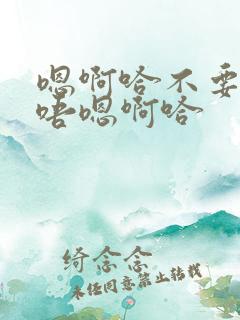 嗯啊哈不要
唔嗯啊哈
绮念念
未经同意禁止转载